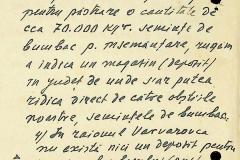 pentru păstrare o cantitate de
cca 70.000 Kgr. seminţe de
bumbac p. însemânţare, rugăm
a indica un magazin (depozit)
în judeţ de unde s'ar putea
ridica direct de către obştiile
noastre, seminţele de bumbac.
4) În raionul Varvarovca
nu există nici un depozit pentru